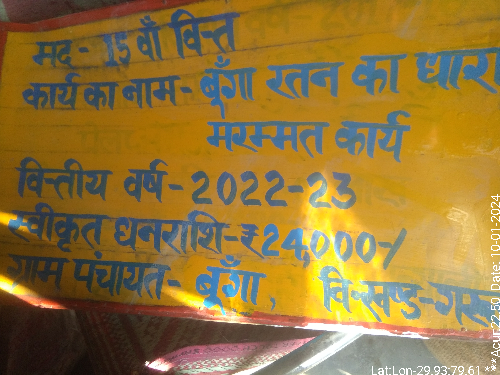 मद- 15 वाँ वित्त
कार्य का नाम- बूँगा रतन का धारा
मरम्मत कार्य
वित्तीय वर्ष- 2022-23
स्वीकृत धनराशि-₹24,000-/
ग्राम पंचायत- बूँगा, वि.खण्ड-
Lat:Lon-29.93:79.61 ***Acur:22.50 Date: 10-01-2024